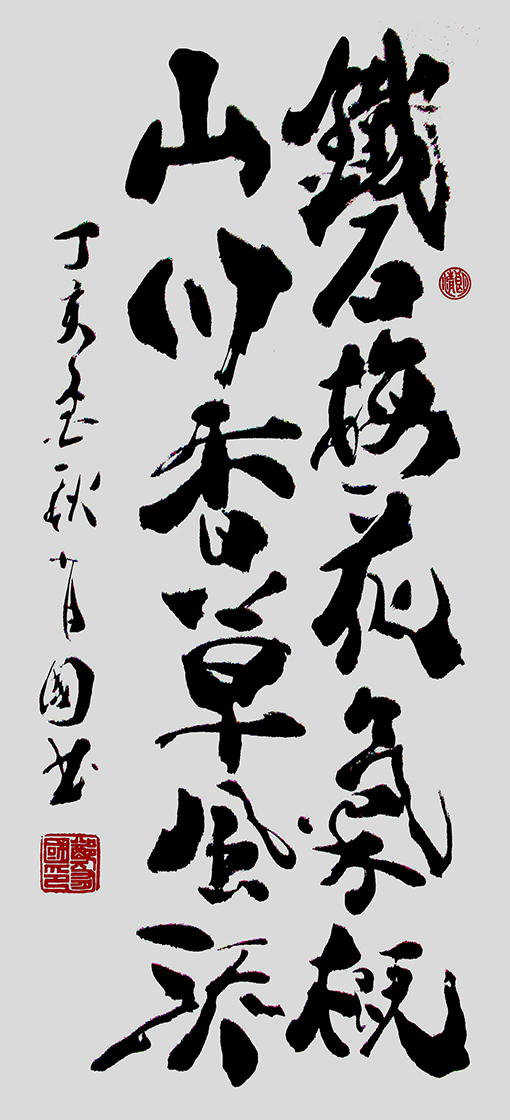 鐵石梅花氣概
山川香草風流
丁亥金秋有國書